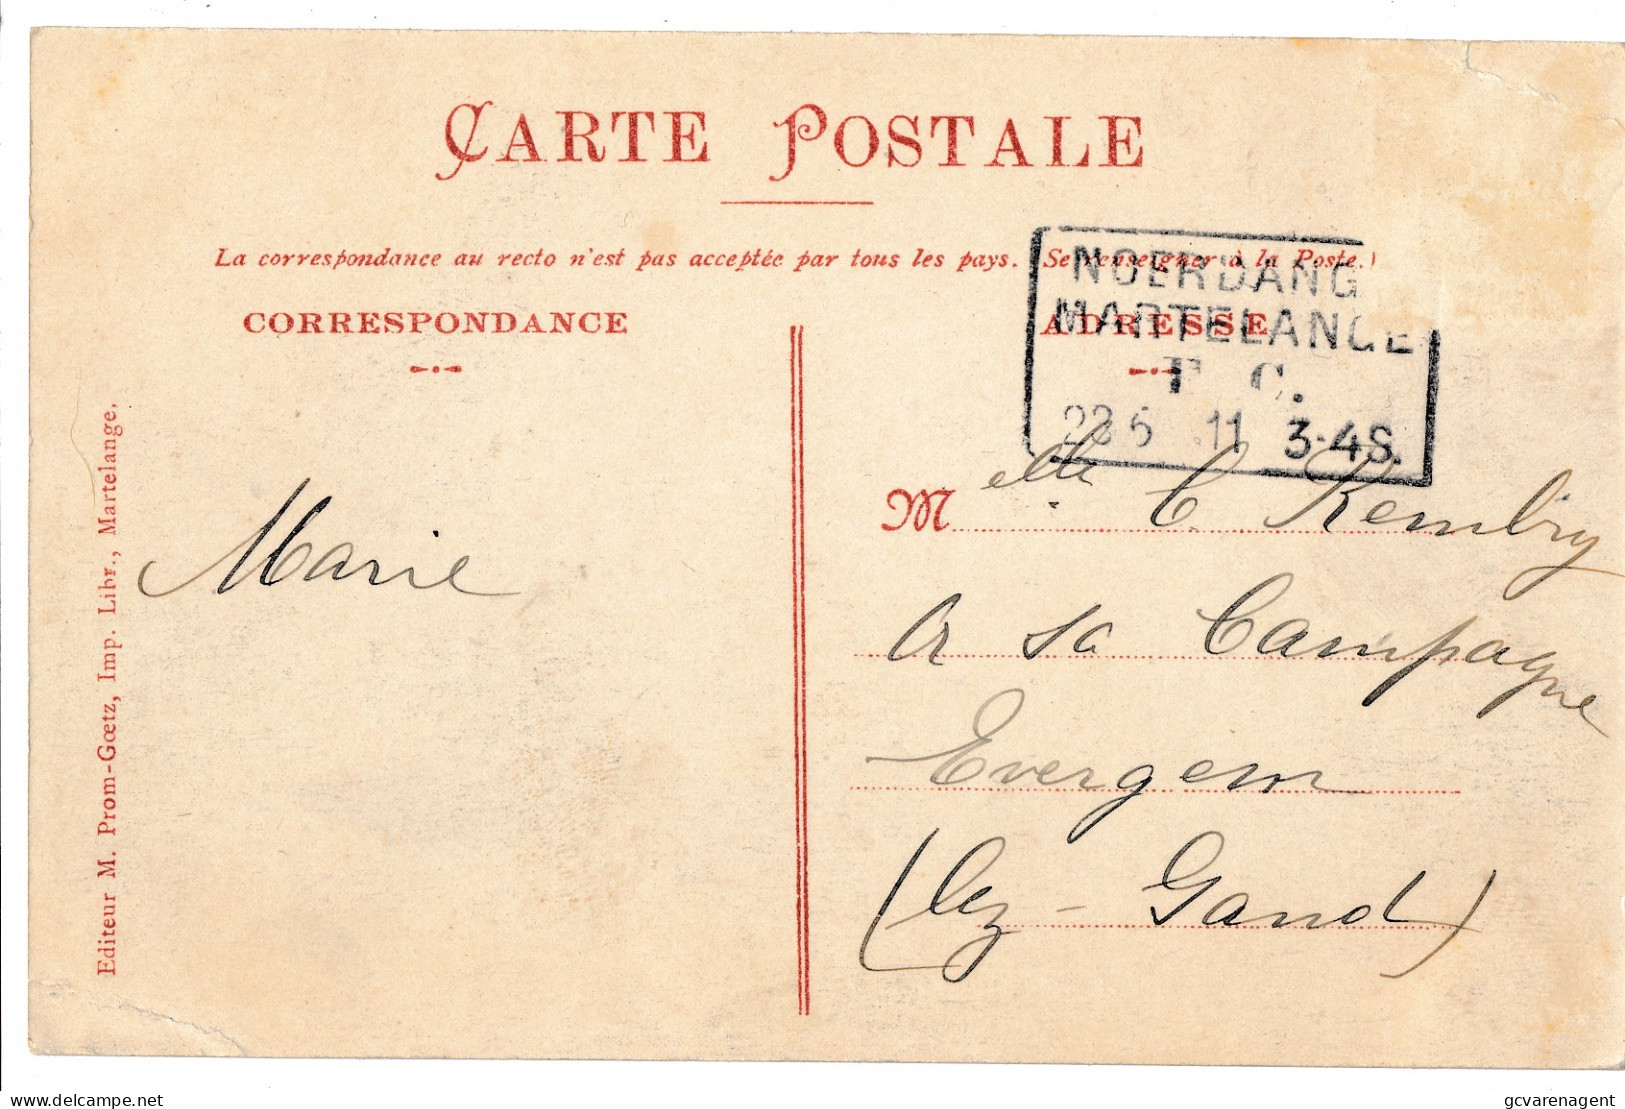 CARTE POSTALE
La correspondance au recto n'est pas acceptée par tous les pays. (Se renseigner à la Poste.)
NOERDANG
MARTELANGE
F. C.
23 5 .11 3-4S.
CORRESPONDANCE
ADRESSE
Melle C. Rembry
A sa Campagne
Evergem
(lez-Gand)
Marie
Editeur M. Prom-Gœtz, Imp. Libr., Martelange.
www.delcampe.net
gcvarenagent